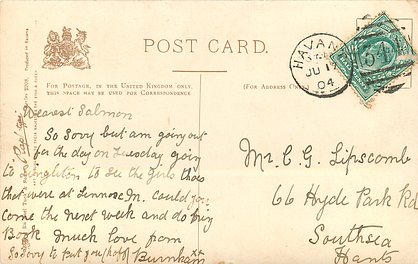 POST CARD
FOR POSTAGE, IN THE UNITED KINGDOM ONLY,
THIS SPACE MAY BE USED FOR CORRESPONDENCE
(FOR ADDRESS ONLY
HAVAN
JU 1
04
Dearest Salmon
So Sorry but am going out
for the day on Tuesday going
to see the Girls
that were at Lennox M. Could you
come the next week and do buy
Book much love from
So Sorry to put you off Burnham
Mr. C. G. Lipscomb
66 Hyde Park Rd
Southsea
Hants